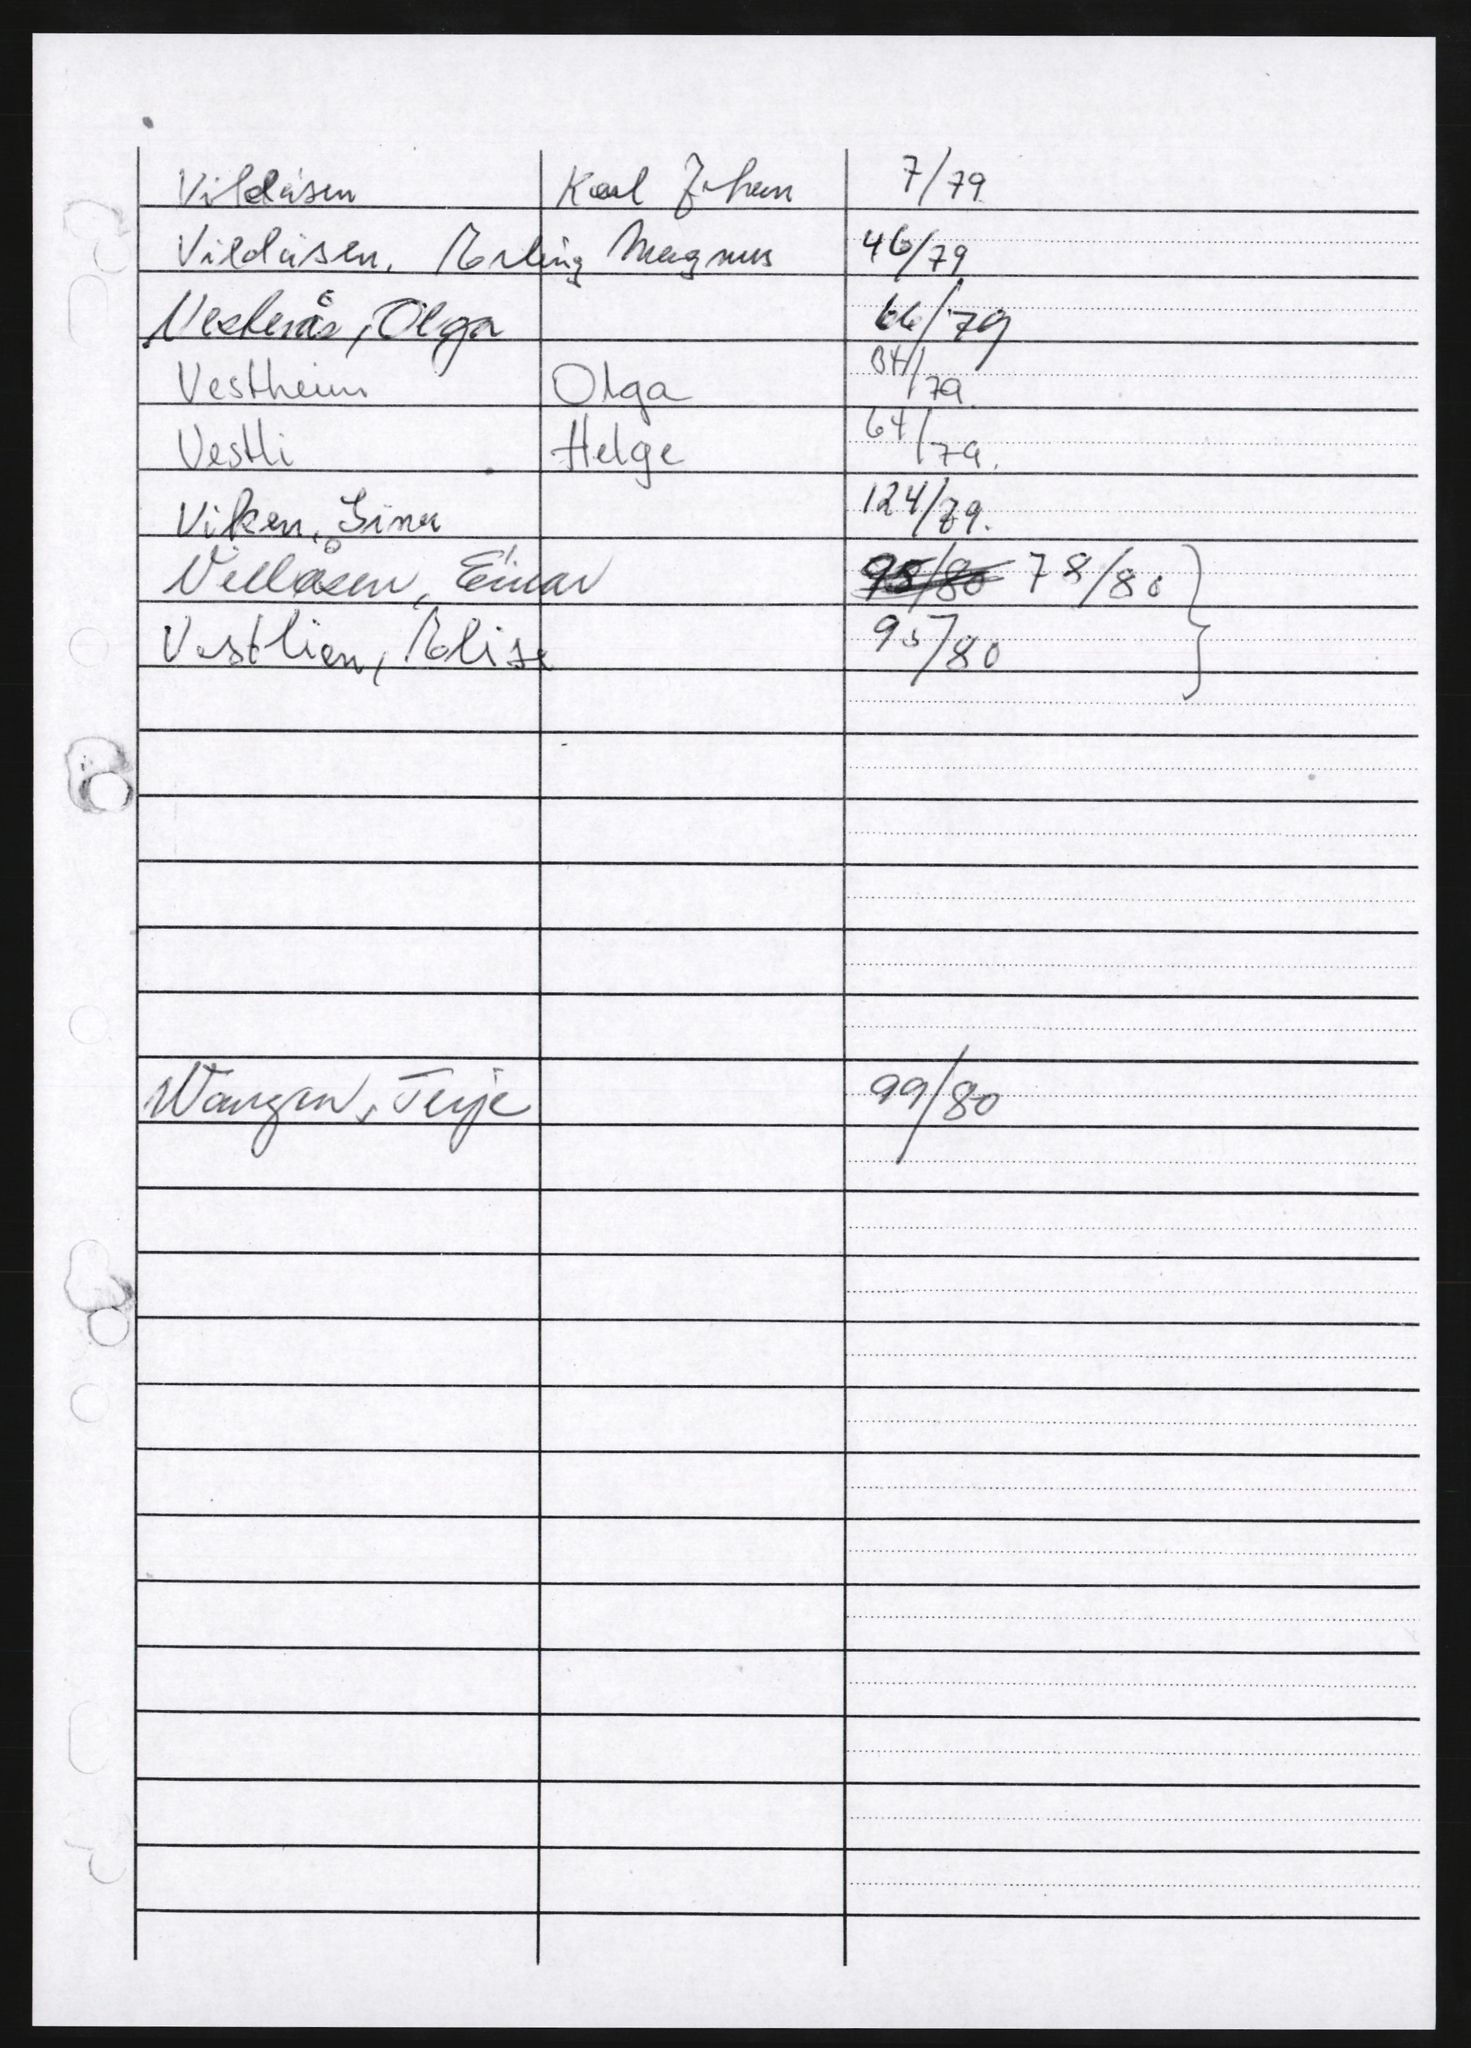 Vildåsen Karl Johan 7/79
Vildåsen, Erling Magnus 46/79
Vesterås, Olga 66/79
Vestheim Olga 84/79
Vestli Helge 64/79.
Viken, Sina 124/79.
Villåsen, Einar 95/80 78/80
Vestlien, Elise 95/80
Wangen, Terje 99/80